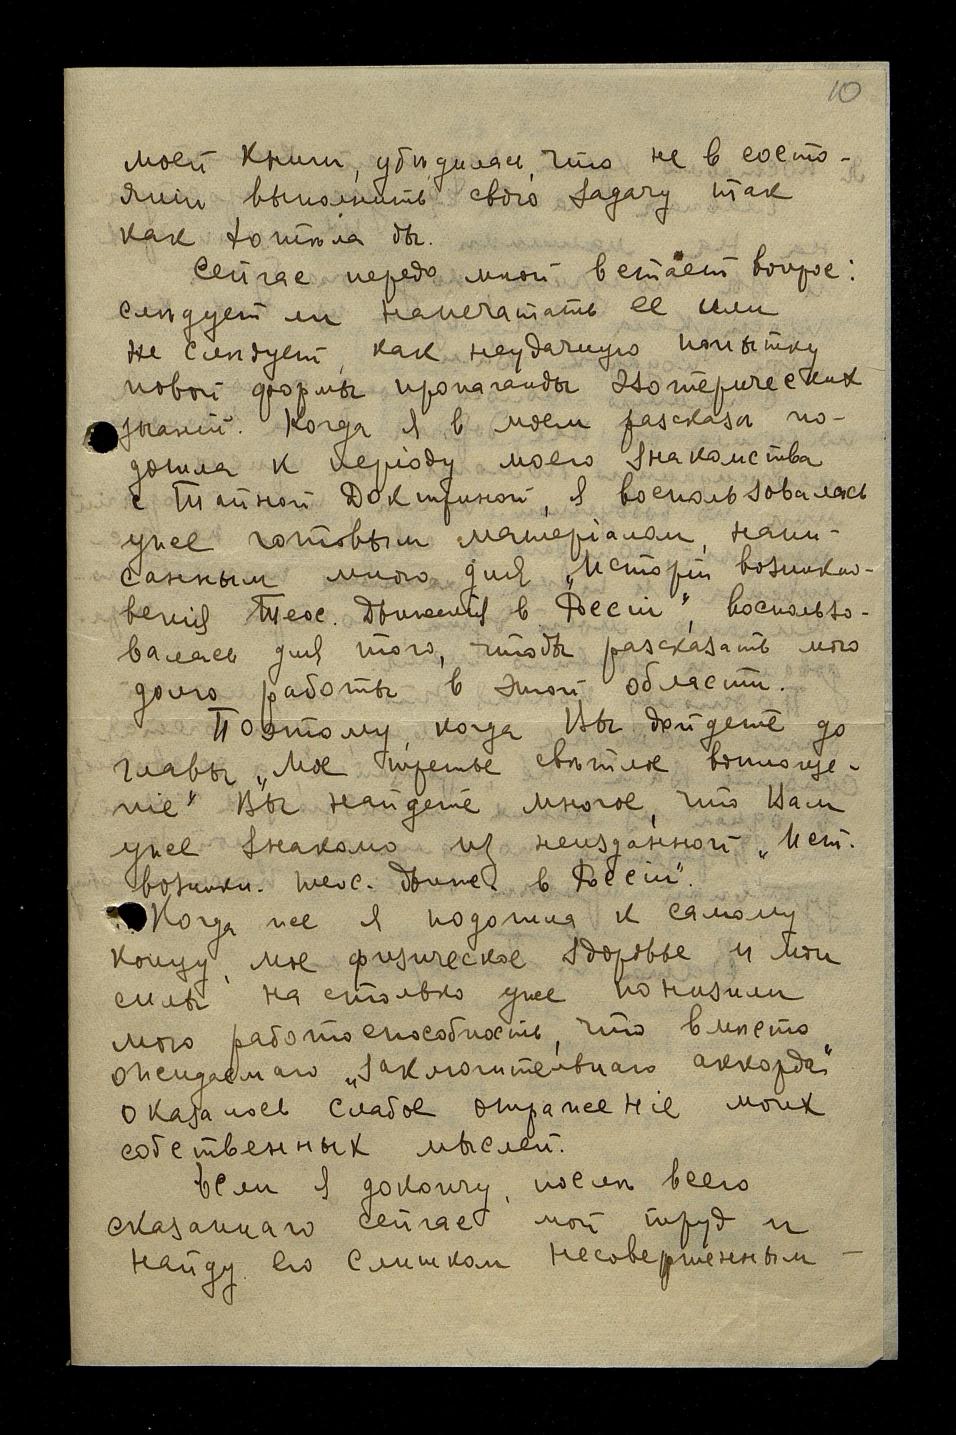 10
моей книги, убѣдилась, что не в состо-
яніи выполнить свою задачу так
как хотѣла бы.
Сейчас передо мной встает вопрос:
слѣдует ли напечатать ее или
не слѣдует, как неудачную попытку
новой формы пропаганды эзотерических
знаній. Когда я в моем разсказѣ по-
дошла к періоду моего знакомства
с Тайной Доктриной, я воспользовалась
уже готовым матеріалом, напи-
санным мною для „Исторіи возникно-
венія Теос. Движенія в Россіи", воспользо-
валась для того, чтобы разсказать мою
долю работы в этой области.
Поэтому, когда Вы дойдете до
главы „Мое третье свѣтлое воплоще-
ніе" Вы найдете многое, что Вам
уже знакомо из неизданной „Ист.
возникн. теос. движ. в Россіи".
Когда же я подошла к самому
концу, мое физическое здоровье и мои
силы на столько уже понизили
мою работоспособность, что вмѣсто
ожидаемаго „заключительнаго аккорда"
оказалось слабое отраженіе моих
собственных мыслей.
Если я докончу, послѣ всего
сказаннаго сейчас мой труд и
найду его слишком несовершенным —